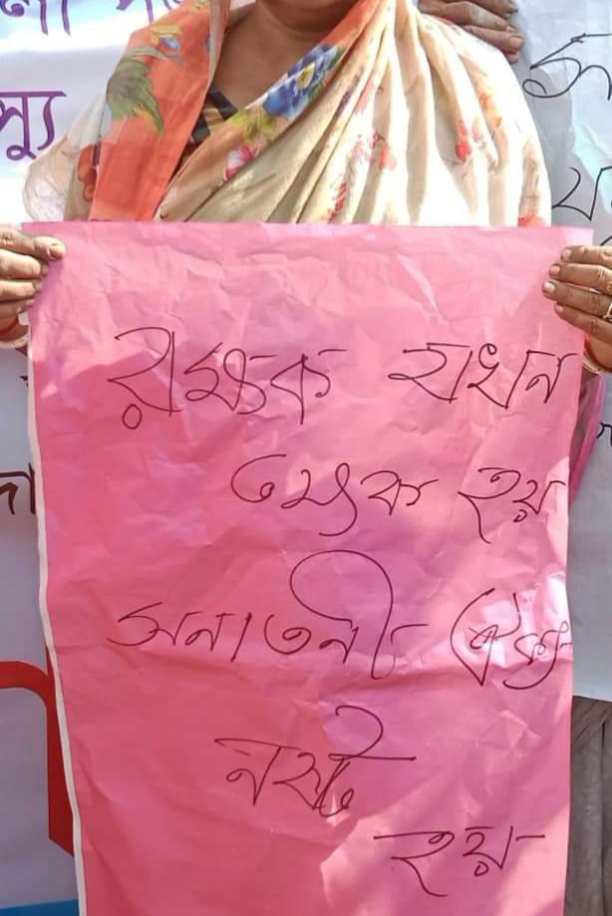 রক্ষক যখন
ভক্ষক হয়
সনাতনী ঐক্য
নষ্ট
হয়